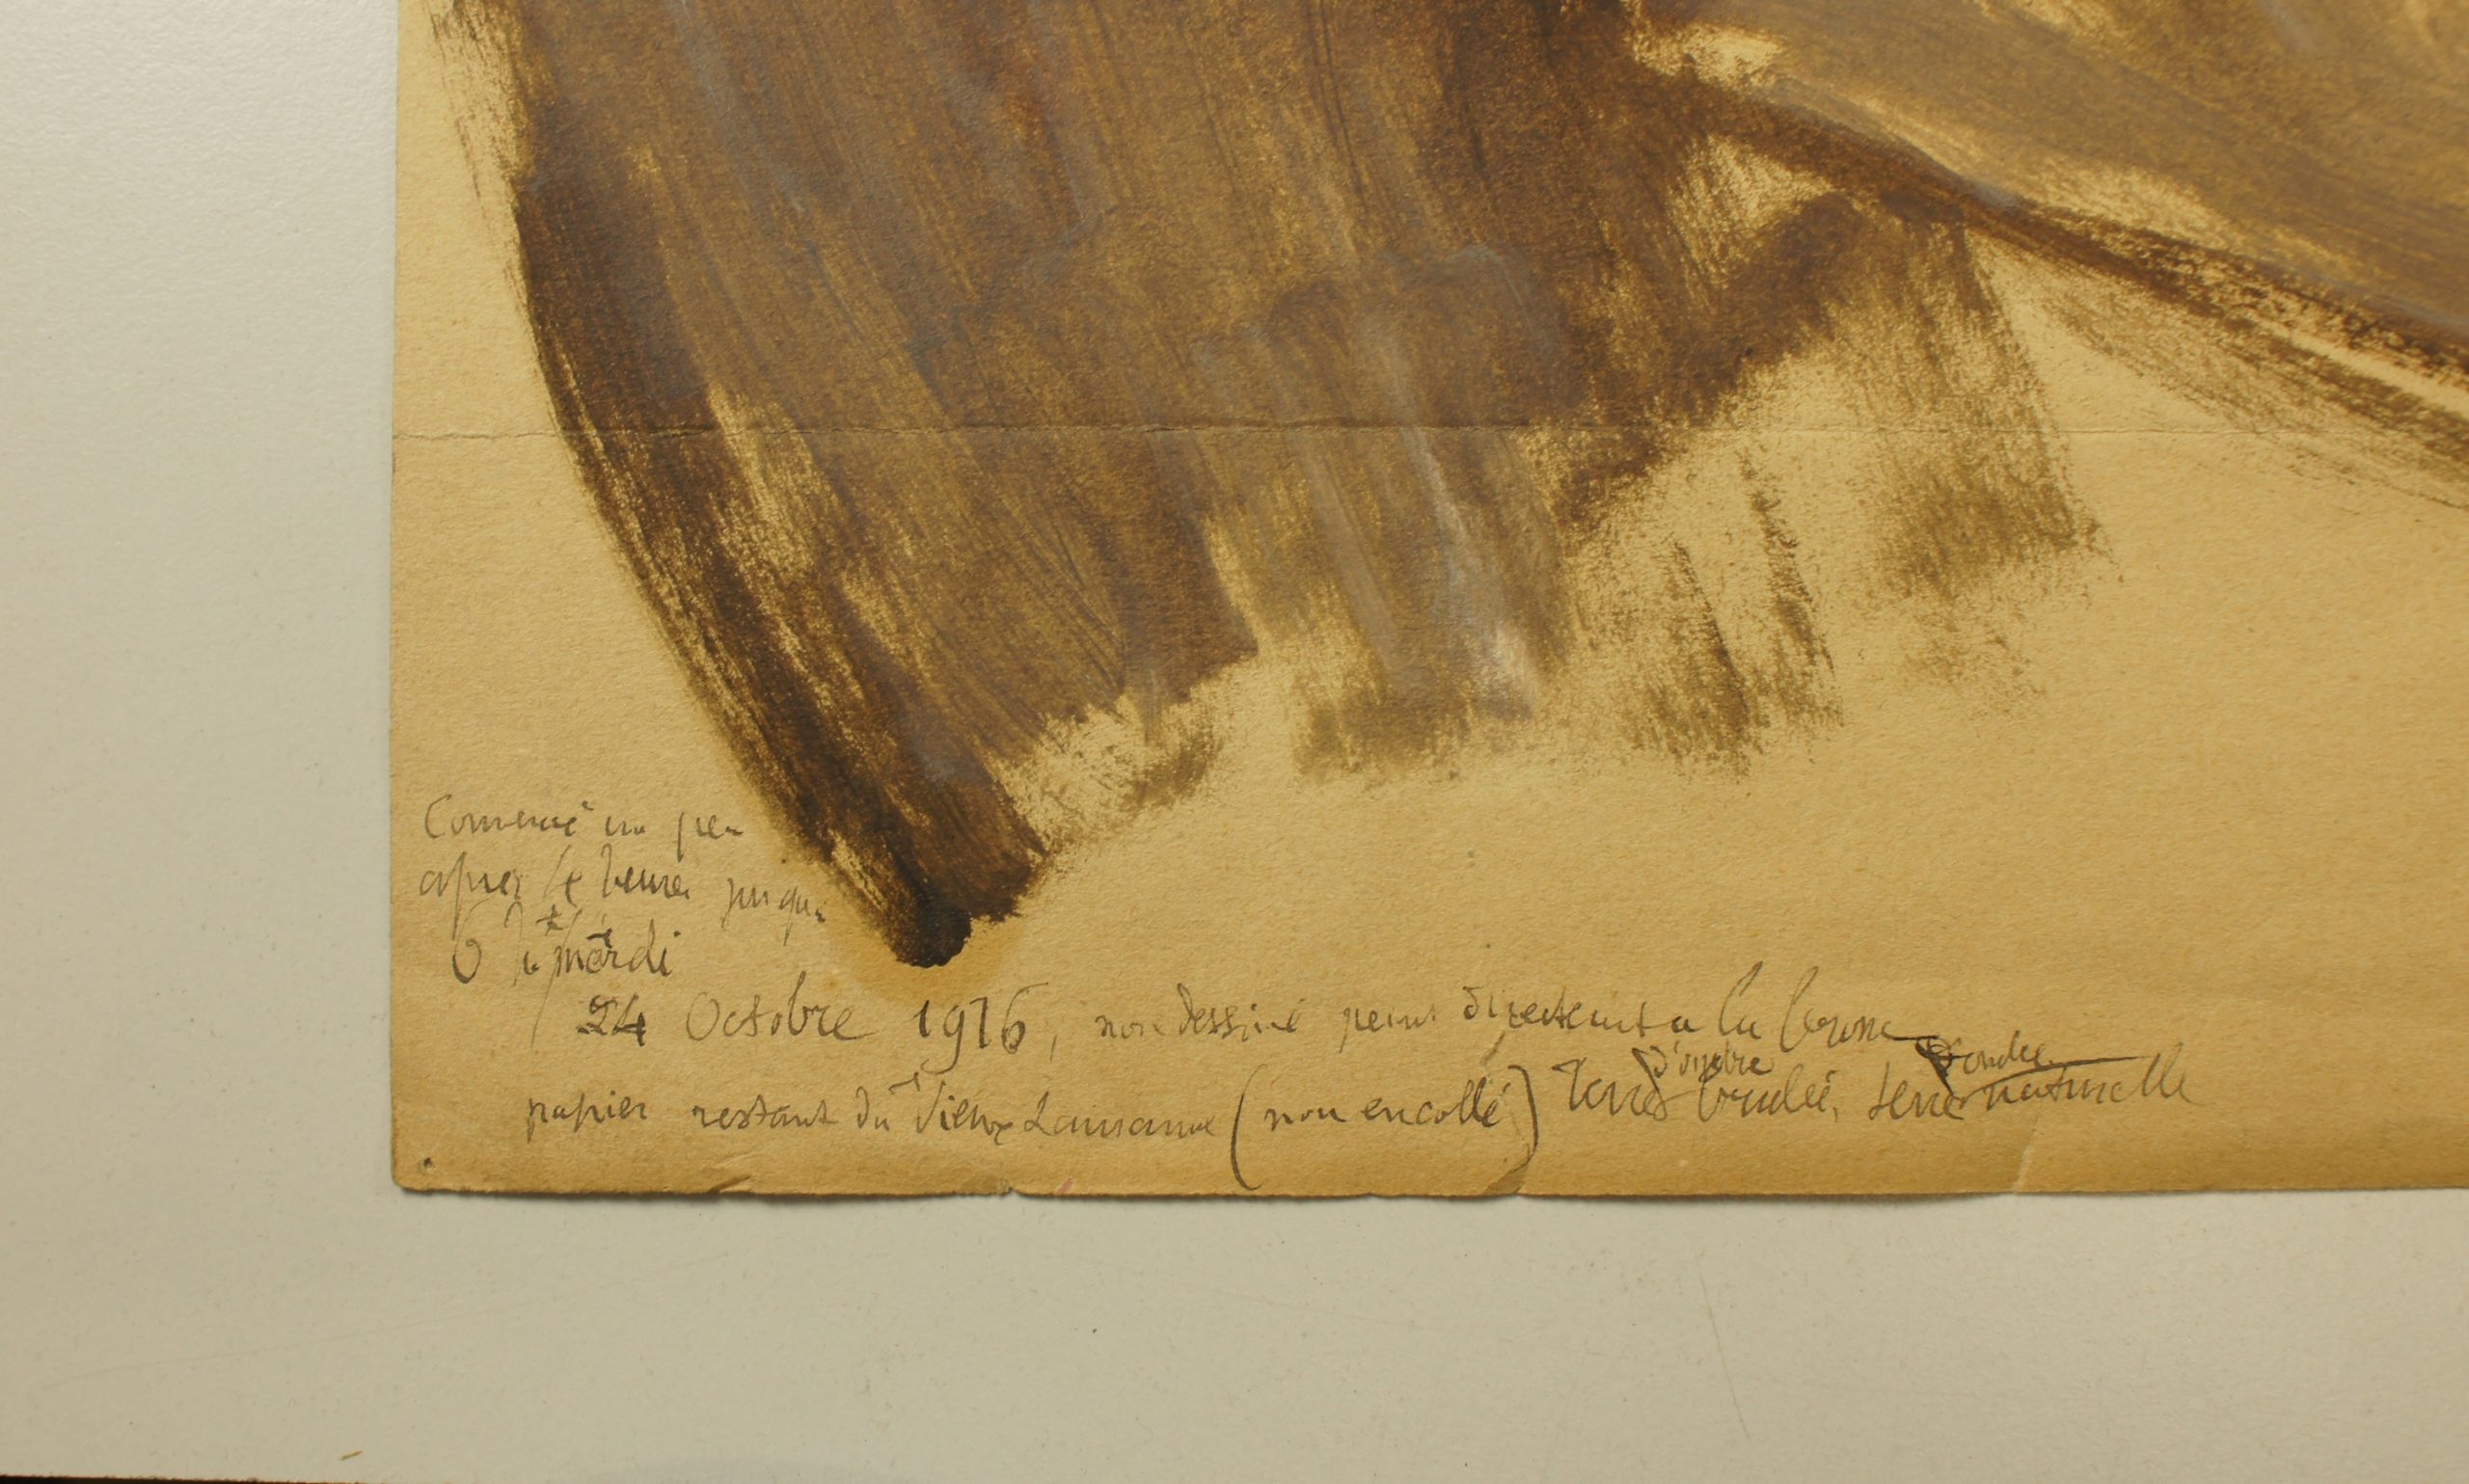 Commencé un peu
après 4 heures jusqu'à
6 h mardi
24 Octobre 1916, non dessiné peint directement a la brosse
d'ombre d'ombre
papier restant du Vieux Lausanne (non encollé) Terre brulée, terre naturelle